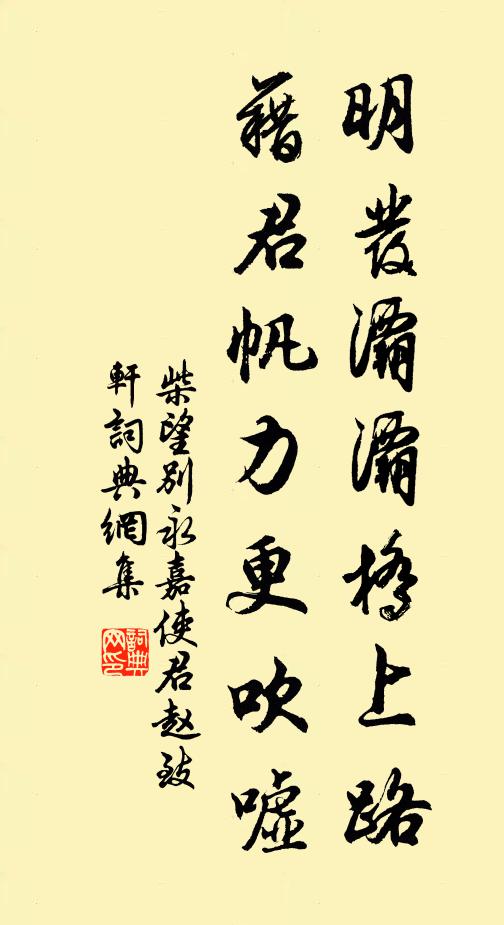 明發灞灞橋上路
藉君帆力更吹噓
柴望別永嘉使君趙致
軒詞典網集
詞典网印